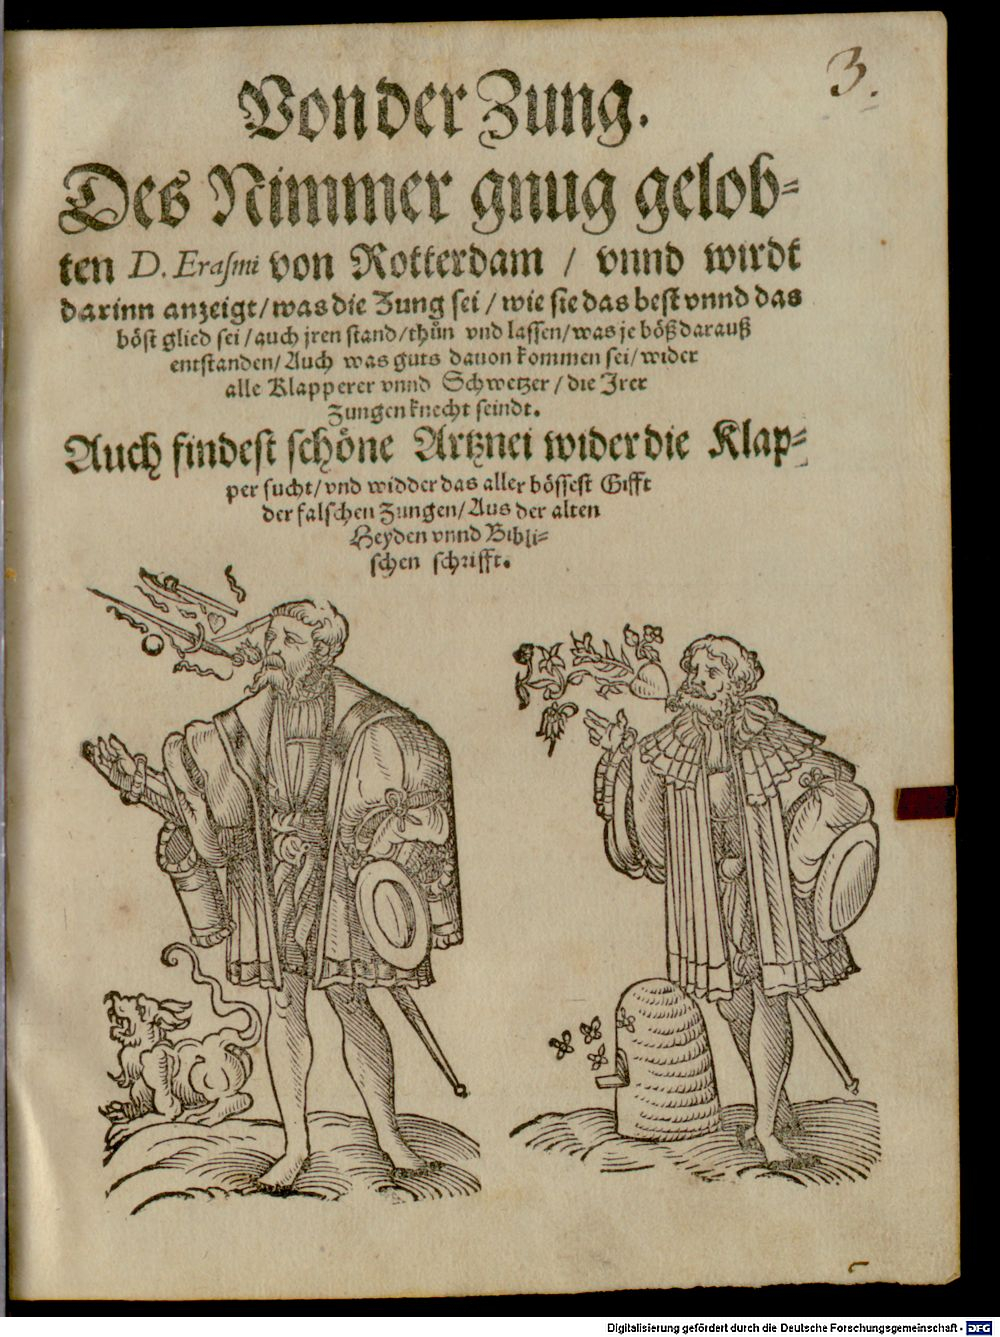 3.
Von der Zung.
Des Nimmer gnug gelob-
ten D. Erasmi von Rotterdam / vnnd wirdt
darinn anzeigt/was die Zung sei/wie sie das best vnnd das
böst glied sei/auch jren stand/thůn vnd lassen/was je böß darauß
entstanden/Auch was guts dauon kommen sei/wider
alle Klapperer vnnd Schwetzer/die Irer
Zungen knecht seindt.
Auch findest schöne Artznei wider die Klap-
per sucht/vnd widder das aller bössest Gifft
der falschen Zungen/Aus der alten
Heyden vnnd Bibli-
schen schrifft.
Digitalisierung gefördert durch die Deutsche Forschungsgemeinschaft - DFG